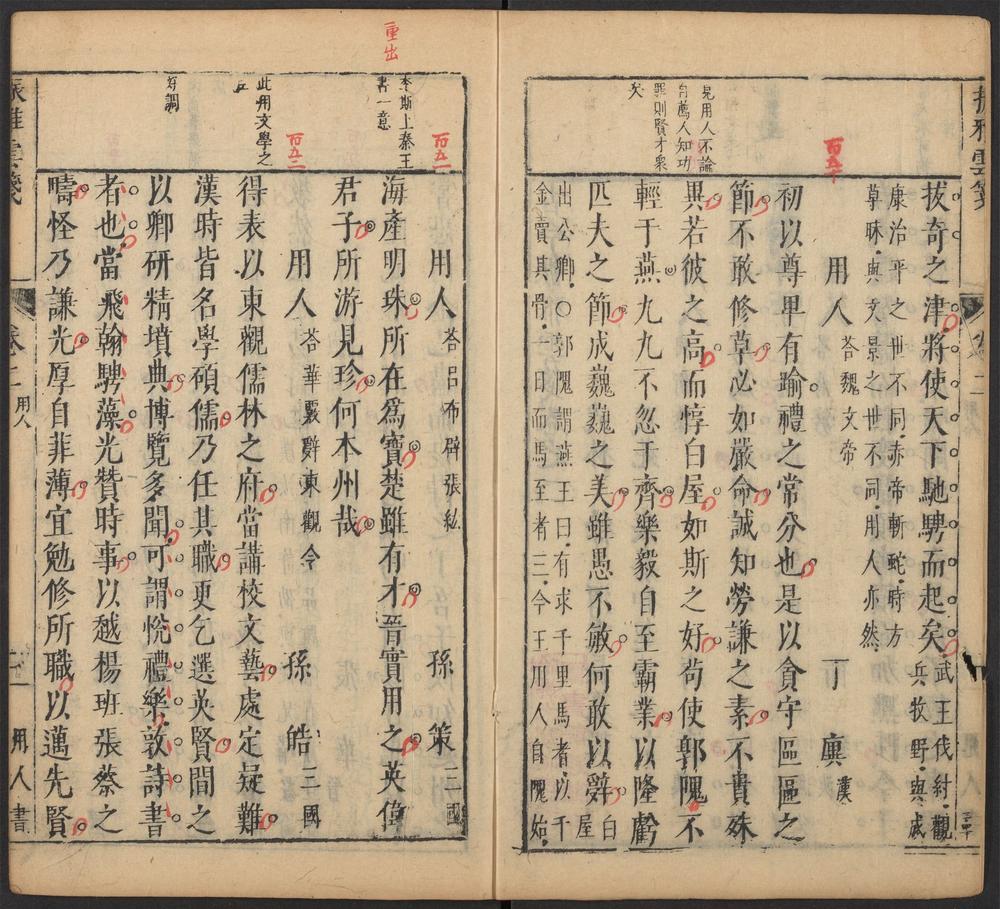 振雅雲箋
卷二
用人
三十
百五十
見用人不論
自薦人知功
罪則賢才衆
矣
拔奇之津將使天下馳騁而起矣武王伐紂觀
兵牧野與成
康治平之世不同赤帝斬蛇時方
草昧與文景之世不同用人亦然
用人荅魏文帝 丁廙漢
初以尊卑有踰禮之常分也是以貪守區區之
節不敢修草必如嚴命誠知勞謙之素不貴殊
異若彼之高而惇白屋如斯之好苟使郭隗不
輕于燕九九不忽于齊樂毅自至霸業以隆虧
匹夫之節成巍巍之美雖愚不敏何敢以辭白
屋
出公卿○郭隗謂燕王曰有求千里馬者以千
金賣其骨一日而馬至者三今王用人自隗始
重出
百五一
李斯上秦王
書一意
百五二
此用文學之
臣
好調
用人荅呂布辟張紘 孫策三國
海產明珠所在爲寶楚雖有才晉實用之英偉
君子所游見珍何本州哉
用人荅華覈辭東觀令 孫皓三國
得表以東觀儒林之府當講校文藝處定疑難
漢時皆名學碩儒乃任其職更乞選英賢聞之
以卿研精墳典博覽多聞可謂悅禮樂敦詩書
者也當飛翰騁藻光贊時事以越楊班張蔡之
疇怪乃謙光厚自菲薄宜勉修所職以邁先賢
振雅雲箋
卷二 用人
用人書